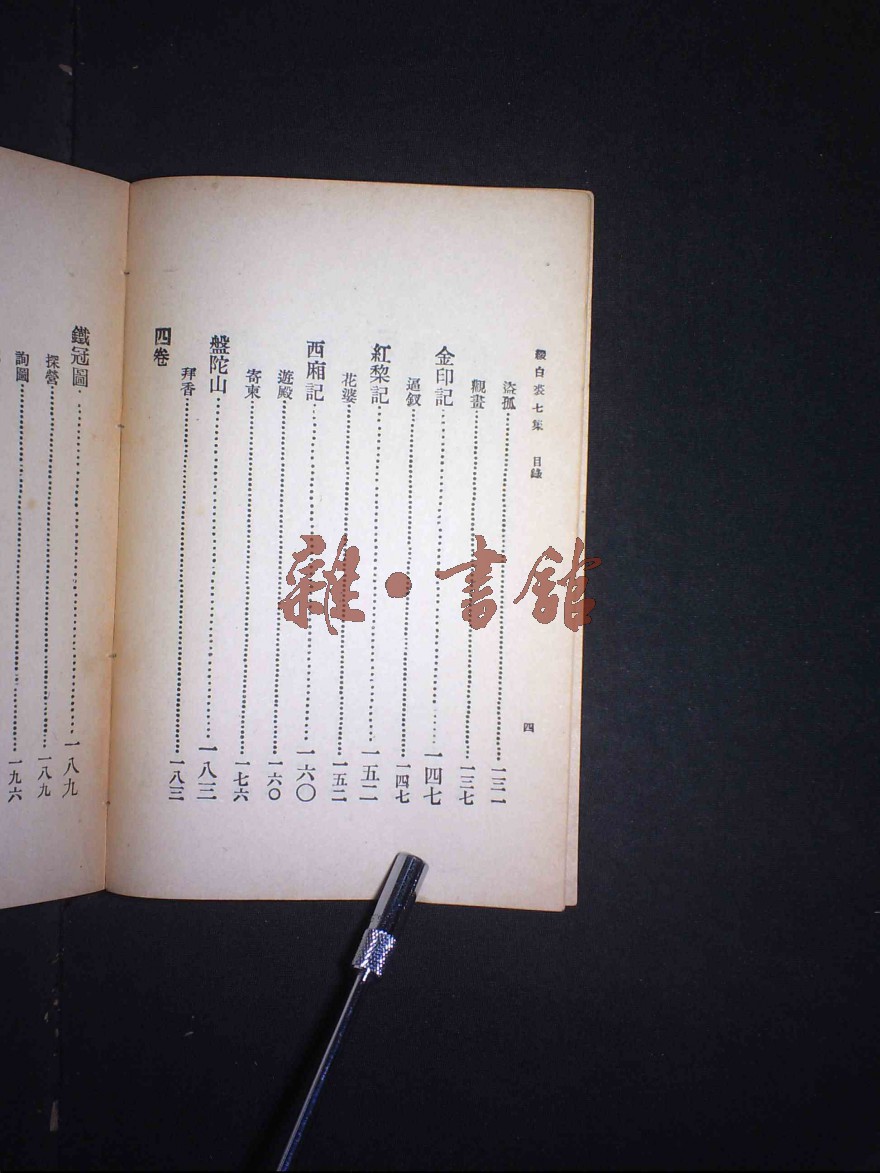 綴白裘七集 目錄 四
盜孤……一三一
觀畫……一三七
金印記……一四七
逼釵……一四七
紅梨記……一五二
花婆……一五二
西廂記……一六〇
遊殿……一六〇
寄柬……一七六
盤陀山……一八三
拜香……一八三
四卷
鐵冠圖……一八九
探營……一八九
詢圖……一九六
雜·書館